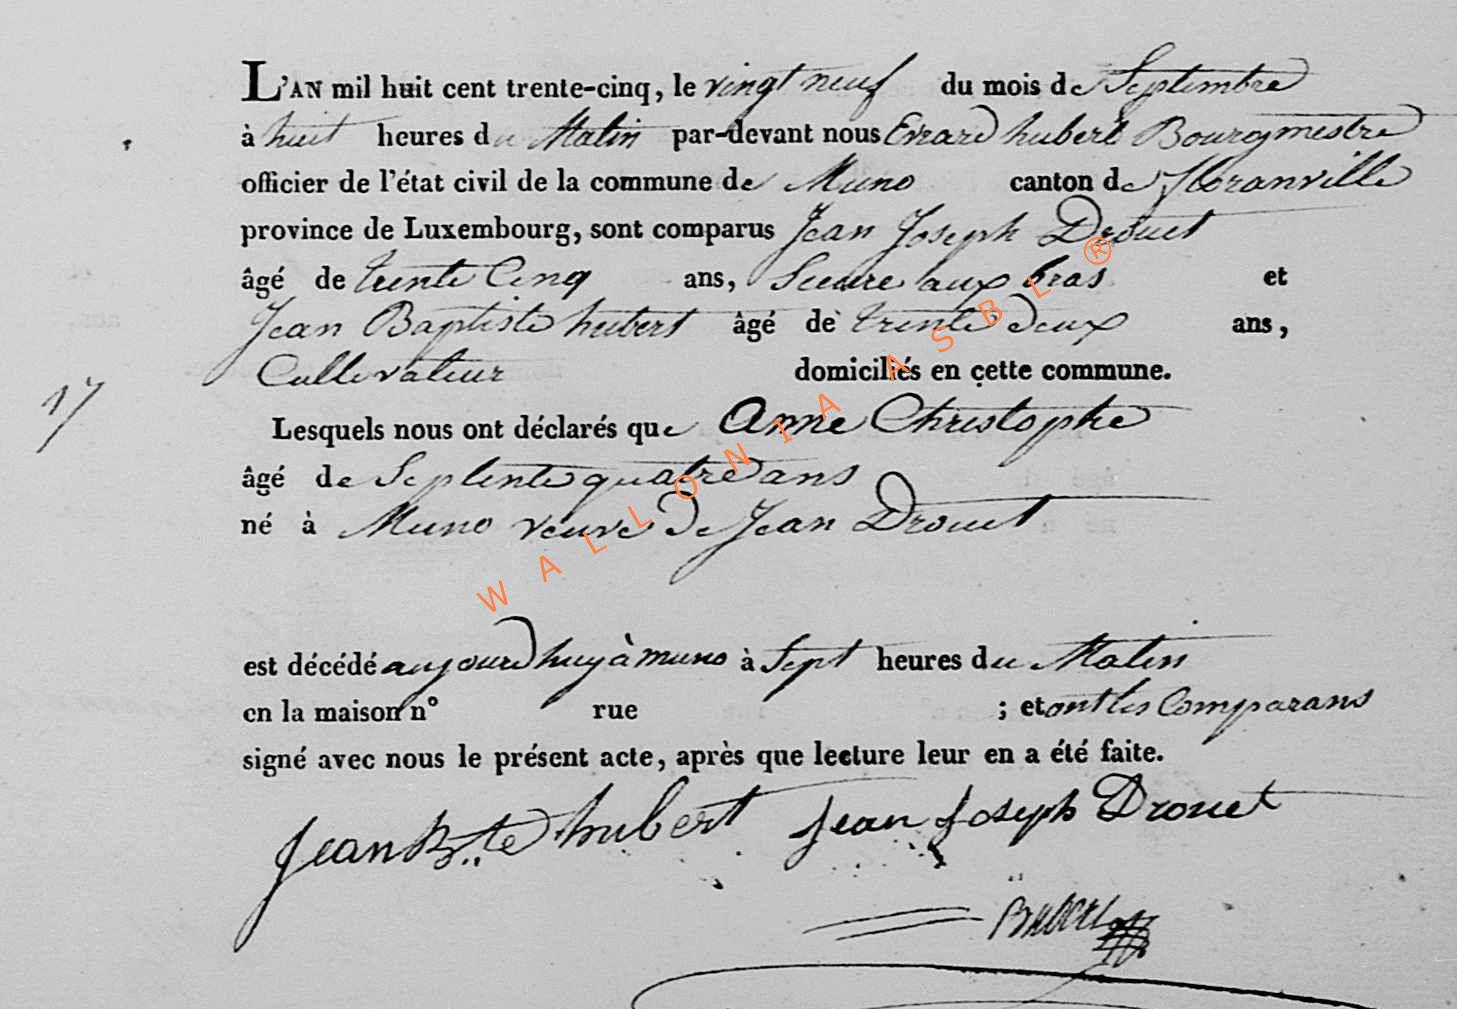 L'AN mil huit cent trente-cinq, le vingt neuf du mois de Septembre
à huit heures du Matin par-devant nous Evrard hubert Bourgmestre
officier de l'état civil de la commune de Muno canton de floranville
province de Luxembourg, sont comparus Jean Joseph Drouet
âgé de trente Cinq ans, aux bras et
Jean Baptiste hubert âgé de trente deux ans,
Cullivateur domiciliés en cette commune.
17
Lesquels nous ont déclarés que Anne Christophe
âgé de Septente quatre ans
né à Muno veuve de Jean Drouet
est décédé aujourd huy à muno à Sept heures du Matin
en la maison n° rue ; et ont les Comparans
signé avec nous le présent acte, après que lecture leur en a été faite.
Jean Bte hubert Jean Joseph Drouet
WALLONIA ASBL ®